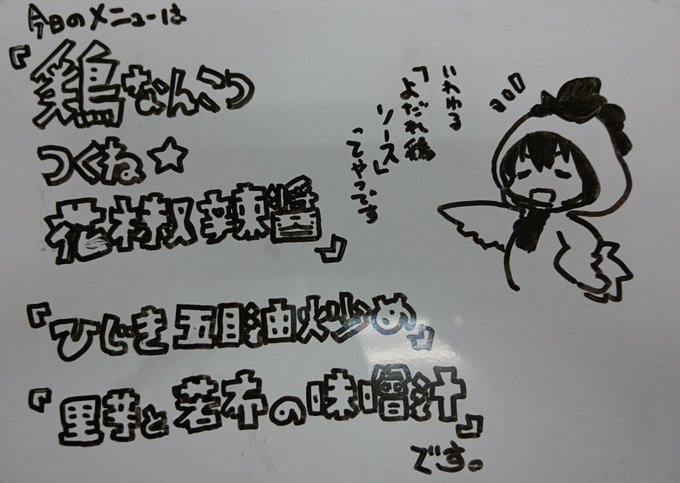 今日のメニューは
『鶏なんこつ
つくね☆
花椒辣醤』
いわゆる
「よだれ鶏
ソース」
ってやつです
『ひじき五目油火少め』
『里芋と若布の味噌汁』
です。